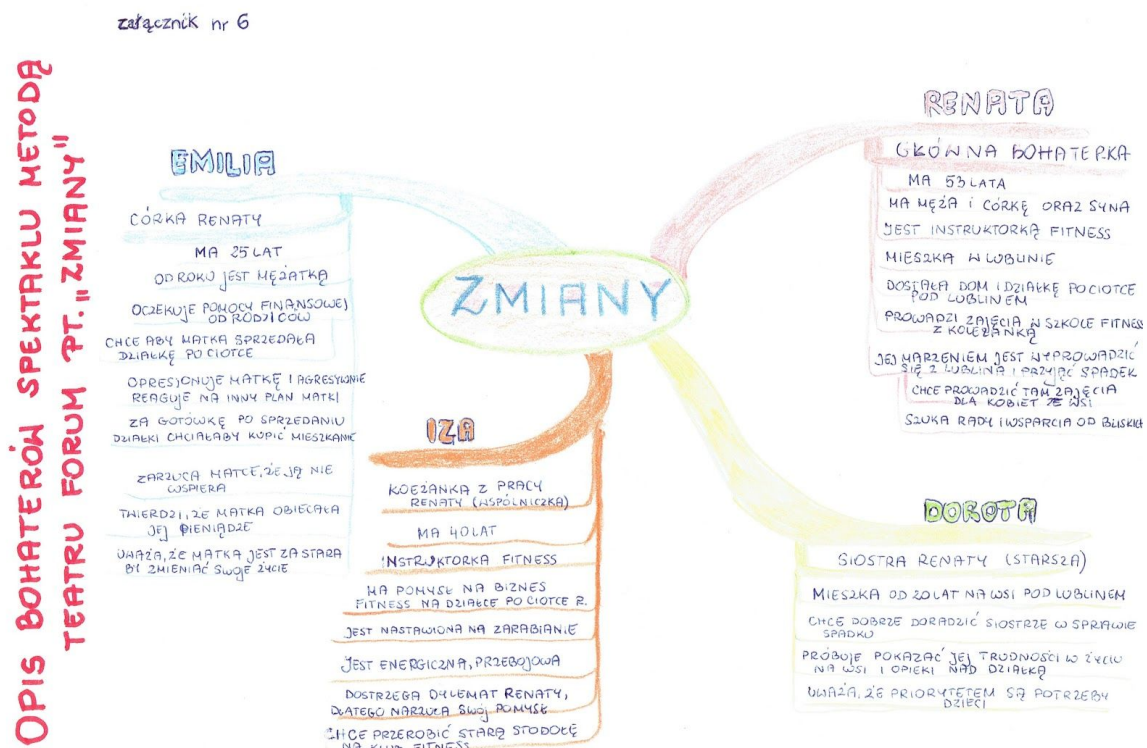 załącznik nr 6
OPIS BOHATERÓW SPEKTAKLU METODĄ
TEATRU FORUM PT. „ZMIANY"
ZMIANY
EMILIA
CÓRKA RENATY
MA 25 LAT
OD ROKU JEST MĘŻATKĄ
OCZEKUJE POMOCY FINANSOWEJ
OD RODZICÓW
CHCE ABY MATKA SPRZEDAŁA
DZIAŁKĘ PO CIOTCE
OPRESJONUJE MATKĘ I AGRESYWNIE
REAGUJE NA INNY PLAN MATKI
ZA GOTÓWKĘ PO SPRZEDANIU
DZIAŁKI CHCIAŁABY KUPIĆ MIESZKANIE
ZARZUCA MATCE, ŻE JĄ NIE
WSPIERA
TWIERDZI, ŻE MATKA OBIECAŁA
JEJ PIENIĄDZE
UWAŻA, ŻE MATKA JEST ZA STARA
BY ZMIENIAĆ SWOJE ŻYCIE
IZA
KOLEŻANKA Z PRACY
RENATY (WSPÓLNICZKA)
MA 40 LAT
INSTRUKTORKA FITNESS
MA POMYSŁ NA BIZNES
FITNESS NA DZIAŁCE PO CIOTCE R.
JEST NASTAWIONA NA ZARABIANIE
JEST ENERGICZNA, PRZEBOJOWA
DOSTRZEGA DYLEMAT RENATY,
DLATEGO NARZUCA SWÓJ POMYSŁ
CHCE PRZEROBIĆ STARĄ STODOŁĘ
NA KLUB FITNESS
RENATA
GŁÓWNA BOHATERKA
MA 53 LATA
MA MĘŻA I CÓRKĘ ORAZ SYNA
JEST INSTRUKTORKĄ FITNESS
MIESZKA W LUBLINIE
DOSTAŁA DOM I DZIAŁKĘ PO CIOTCE
POD LUBLINEM
PROWADZI ZAJĘCIA W SZKOLE FITNESS
Z KOLEŻANKĄ
JEJ MARZENIEM JEST WYPROWADZIĆ
SIĘ Z LUBLINA I PRZYJĄĆ SPADEK
CHCE PROWADZIĆ TAM ZAJĘCIA
DLA KOBIET ZE WSI
SZUKA RADY I WSPARCIA OD BLISKICH
DOROTA
SIOSTRA RENATY (STARSZA)
MIESZKA OD 20 LAT NA WSI POD LUBLINEM
CHCE DOBRZE DORADZIĆ SIOSTRZE W SPRAWIE
SPADKU
PRÓBUJE POKAZAĆ JEJ TRUDNOŚCI W ŻYCIU
NA WSI I OPIEKI NAD DZIAŁKĄ
UWAŻA, ŻE PRIORYTETEM SĄ POTRZEBY
DZIECI